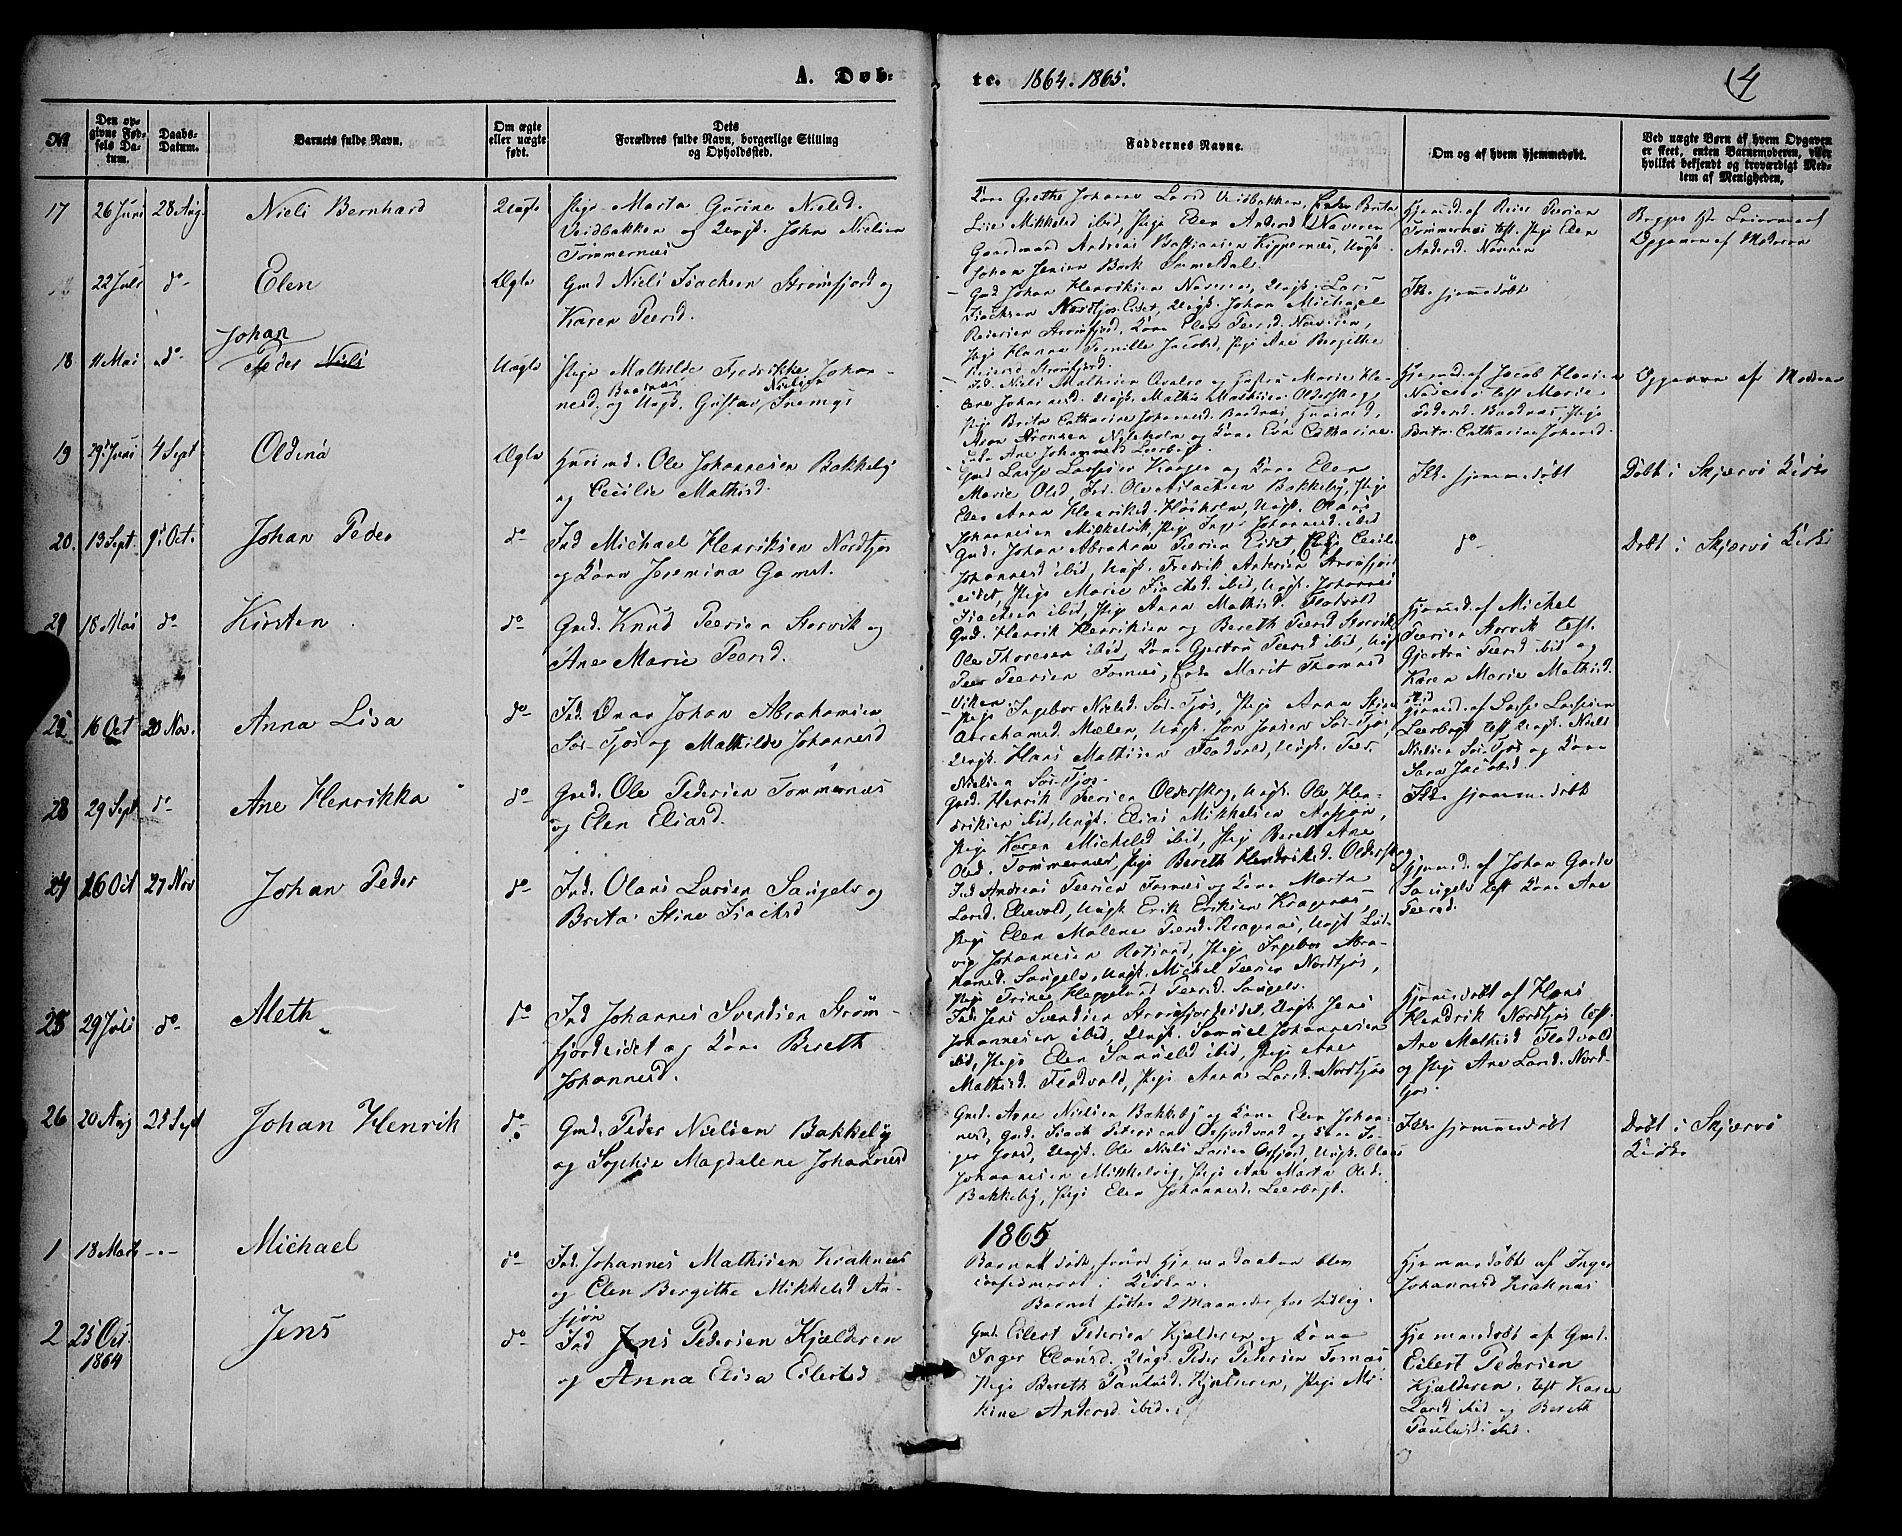 A. Døb-
te. 1864. 1865.
4
No
Den op-
givne Fød-
sels Da-
tum.
Daabs-
Datum.
Barnets fulde Navn.
Om ægte
eller uægte
født.
Dets
Forældres fulde Navn, borgerlige Stilling
og Opholdssted.
Faddernes Navne.
Om og af hvem hjemmedøbt.
Ved uægte Børn af hvem Opgaven
er skeet, enten Barnemoderen, eller
hvilket bekjendt og troværdigt Med-
lem af Menigheden.
17 26 Juni 28 Aug. Nieli Bernhard Uægte Pige Marta Gurine Nielsd.
Veidbakken og Ungk. John Nielsen
Tømmernæs
Kone Grethe Johanne Larsd Veidbakken, Brita
Lise Mikkelsd ibid, Pige Elen Andersd Naveren
Gaardmand Andreas Bastiansen Kippernæs, Ungk.
Johan Jensen Bork
Hjemmd. af Peersen
Tømmernæs test. Pige Elen
Andersd. Naveren
Opgaven af Moderen
22 Juli do Elen Ægte Gmd Niels Isachsen Strømfjord og
Karen Peersd.
Gmd Johan Henriksen Naveren, Ungk. Lars
Isachsen Eidet, Ungk. Johan Michael
Reiersen Strømfjord, Kone Elen Peersd. Naveren,
Pige Hanna Pernille Jacobsd, Pige Ane Bergithe
Reiersd Strømfjord.
Ikke hjemmedøbt
18 11 Mai do Johan
Peder Niels Uægte Pige Mathilde Fredrikke Johan-
nesd. Baadnæs og Ungk. Gustav Nielsen
Ind. Niels Mathisen og Hustru Marie
Johannesd. Ungk. Mathis Mathisen Olderskog,
Pige Brita Catharine Johannesd. Baadnæs,
Aron Aronsen og Kone Eva Catharine
Ane Johannesd Leerbugt.
Hjemmd. af Jacob Hansen
test Marie
Pedersd. Baadnæs Pige
Brita Catharina Johansd.
Opgaven af Moderen
19 29 Juni 4 Sept Oldina Ægte Huusmd. Ole Johannesen Bakkeby
og Cecilie Mathisd.
Gmd Lasse Lassesen og Kone Elen
Marie Olsd, Ind. Ole Aslachsen Bakkeby, Pige
Elen Anna Henriksd. Høiholm, Ungk. Olaus
Johannesen Mikkelvik, Pige Inger Johannesd. ibid
Ikke hjemmedøbt
Døbt i Skjervø Kirke
20. 13 Sept 9 Oct. Johan Peder do Ind Michael Henriksen Nordkjos
og Kone Jeremina Gamst.
Gmd. Johan Abraham Peersen Eidet, Pige Cecilie
Johannesd ibid, Ungk. Fredrik Andersen Strømfjord
eidet, Pige Marie Isachsd. ibid, Ungk. Johannes
Isachsen ibid, Pige Anna Mathisd. Fladvold
do
Døbt i Skjervø Kirke
21 18 Mai do Kirsten do Gmd. Knud Peersen Storvik og
Ane Marie Peersd.
Gmd. Henrik Henriksen og Bereth Peersd Storvik
Ole Thoresen ibid, Kone Gjertru Peersd ibid, Ungk
Peer Peersen Fornæs, Enke Marit Thomasd
Viken.
Hjemmd. af Michel
Peersen Storvik test.
Gjertru Peersd ibid og
Karen Marie Mathisd.
ibid
22 16 Oct 20 Nov. Anna Lisa do Ind. Onar Johan Abrahamsen
Sør-Kjos og Mathilde Johannesd
Pige Ingebor Nielsd. Sør-Kjos, Pige Anna Stina
Abrahamsd. Mælen, Ungk. Jon Jonsen Sør-Kjos,
Ungk. Hans Mathisen Fladvold, Ungk. Peer
Nielsen Sør-Kjos.
Hjemmd. af Lasse Lassesen
Leerbugt test Ungk. Niels
Nielsen Sør-Kjos og Kone
Sara Jacobsd.
23 29 Sept do Ane Henrikka do Gmd. Ole Pedersen Tømmernæs
og Elen Eliasd.
Gmd. Henrik Peersen Olderskog, Ungk. Ole Hen-
driksen ibid, Ungk. Elias Mikkelsen Arsjøn,
Pige Karen Michelsd ibid, Pige Bereth Ane
Olsd. Tømmernæs Pige Bereth Hendriksd. Olderskog
Ikke hjemmedøbt
24 16 Oct 27 Nov Johan Peder do Ind. Olaus Larsen Sandgels og
Brita Stine Isachsd
Ind Andreas Peersen Fornæs og Kone Marta
Larsd. Elvevold, Ungk Erik Eriksen Kragenæs,
Pige Elen Malene Peersd. Kragenæs, Ungk Lud-
vig Johannesen, Pige Ingebor Abra-
hamsd. Sandgels, Ungk. Michel Peersen Nordkjos,
Pige Trine Peersd. Sandgels.
Hjemmd. af Johan
test Kone Ane
Peersd.
25 29 Juli do Meth do Ind Johannes Svendsen Strøm-
fjordeidet og Kone Bereth
Johannesd.
Ind. Jens Svendsen Strømfjordeidet, Ungk Jens
Johannesen ibid, Ungk. Samuel Johannesen
ibid, Pige Elen Samuelsd ibid, Pige Ane
Mathisd. Fladvold, Pige Anna Larsd. Nordkjos
Hjemmedøbt af Hans
Hendrik Nordkjos test.
Ane Mathisd Fladvold
og Pige Ane Larsd. Nord-
kjos.
26 20 Aug 28 Sept Johan Henrik do Gmd. Peder Nielsen Bakkeby
og Sophie Magdalene Johannesd
Gmd. Arne Nielsen Bakkeby og Kone Elen Johan-
nesd, Gmd. Isach Petersen og Kone In-
ger Jonsd, Ungk. Ole Niels Larsen Oxfjord, Ungk. Olaus
Johannesen Mikkelvig, Pige Ane Marta Olsd.
Bakkeby, Pige Elen Johannesd. Leerbugt.
Ikke hjemmedøbt
Døbt i Skjervø
Kirke
1865
1 18 Marts -.- Michael do Ind. Johannes Mathisen Kraknæs
og Elen Bergithe Mikkelsd Ar-
sjøn
Barnet døde, førend Hjemmedaaben blev
confirmeret i Kirken.
Barnet fødtes 2 Maaneder for tidlig.
Hjemmedøbt af Inger
Johannesd Kraknæs
2 25 Oct.
1864 Jens do Ind Jens Pedersen Kjælderen
og Anna Elisa Eilertsd
Gmd. Eilert Pedersen Kjælderen og Kone
Inger Clausd. Ungk. Peder Pedersen Fornæs
Pige Bereth Paulusd. Kjælderen, Pige
Andersd ibid.
Hjemmedøbt af Gmd.
Eilert Pedersen
Kjælderen. test Karen
Larsd ibid og Bereth
Paulusd. ibid.